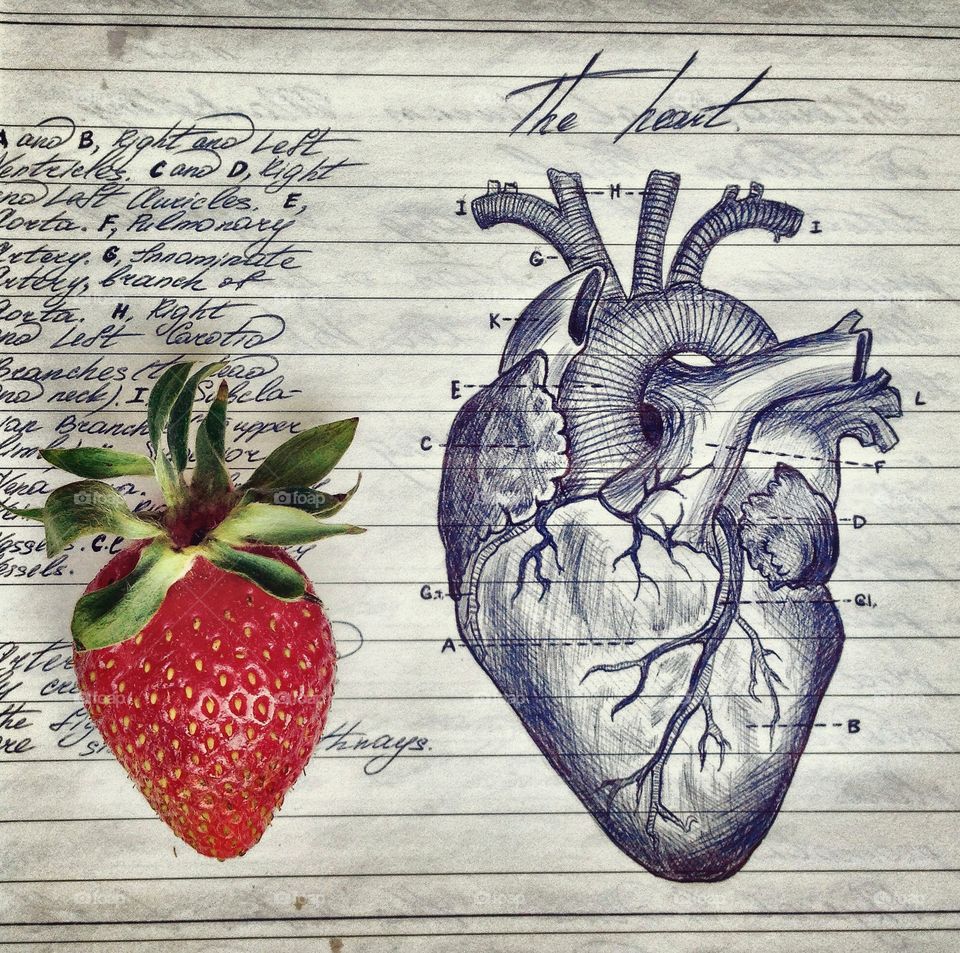 The heart.
A and B, Right and Left
Ventricles. C and D, Right
and Left Auricles. E,
Aorta. F, Pulmonary
Artery. G, Innominate
Artery, branch of
Aorta. H, Right
and Left Carotid
Branches (to head
and neck). I Subcla-
var Branch upper
Vena
Vessels. C.c
essels.
Arter
ly
the
are thways.
I
H
I
G
K
E
L
C
F
D
G.
G1.
A
B
foap